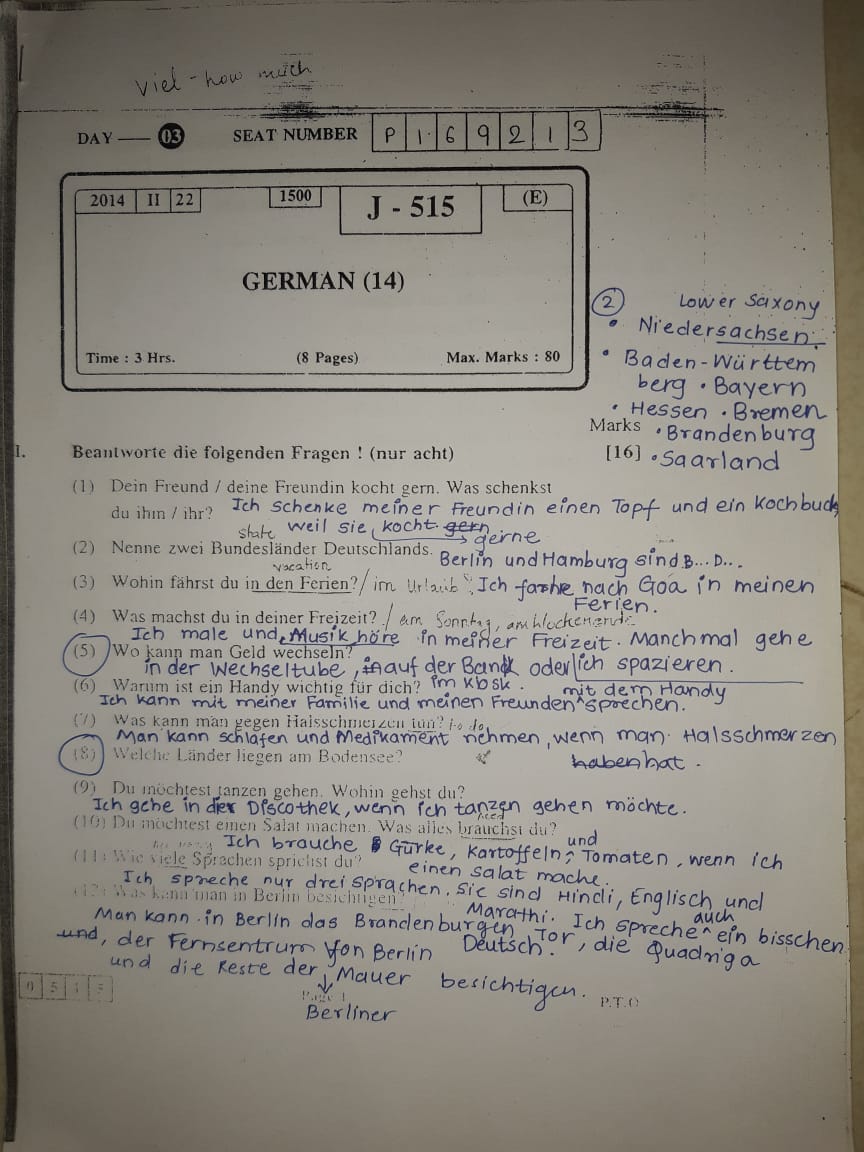 Viel - how much
DAY — 03 SEAT NUMBER P 1 6 9 2 1 3
2014 II 22 1500 J - 515 (E)
GERMAN (14)
Time : 3 Hrs. (8 Pages) Max. Marks : 80
② Lower Saxony
• Niedersachsen.
• Baden-Württem
berg • Bayern
• Hessen • Bremen
Marks • Brandenburg
I. Beantworte die folgenden Fragen ! (nur acht) [16] • Saarland
(1) Dein Freund / deine Freundin kocht gern. Was schenkst
du ihm / ihr? Ich schenke meiner Freundin einen Topf und ein Kochbuch
weil sie kocht gern gerne
state
(2) Nenne zwei Bundesländer Deutschlands. Berlin und Hamburg sind B... D...
vacation
(3) Wohin fährst du in den Ferien? / im Urlaub Ich fahre nach Goa in meinen
Ferien.
(4) Was machst du in deiner Freizeit? / am Sonntag, am Wochenende
Ich male und Musik höre in meiner Freizeit. Manchmal gehe
(5) Wo kann man Geld wechseln?
in der Wechseltube, in auf der Bank oder ich spazieren.
(6) Warum ist ein Handy wichtig für dich? im Kiosk. mit dem Handy
Ich kann mit meiner Familie und meinen Freunden sprechen.
(7) Was kann man gegen Halsschmerzen tun? to do
Man kann schlafen und Medikament nehmen, wenn man Halsschmerzen
(8) Welche Länder liegen am Bodensee? haben hat.
(9) Du möchtest tanzen gehen. Wohin gehst du?
Ich gehe in der Discothek, wenn ich tanzen gehen möchte.
need
(10) Du möchtest einen Salat machen. Was alles brauchst du?
Ich brauche Gurke, Kartoffeln und Tomaten, wenn ich
(11) Wie viele Sprachen sprichst du? einen Salat mache.
Ich spreche nur drei Sprachen. Sie sind Hindi, Englisch und
(12) Was kann man in Berlin besichtigen? Marathi. Ich spreche auch ein bisschen
Deutsch.
Man kann in Berlin das Brandenburgen Tor, die Quadriga
und, der Fernsentrum Von Berlin
und die Reste der Mauer besichtigen.
0 5 1 5 Page 1 P.T.O
Berliner